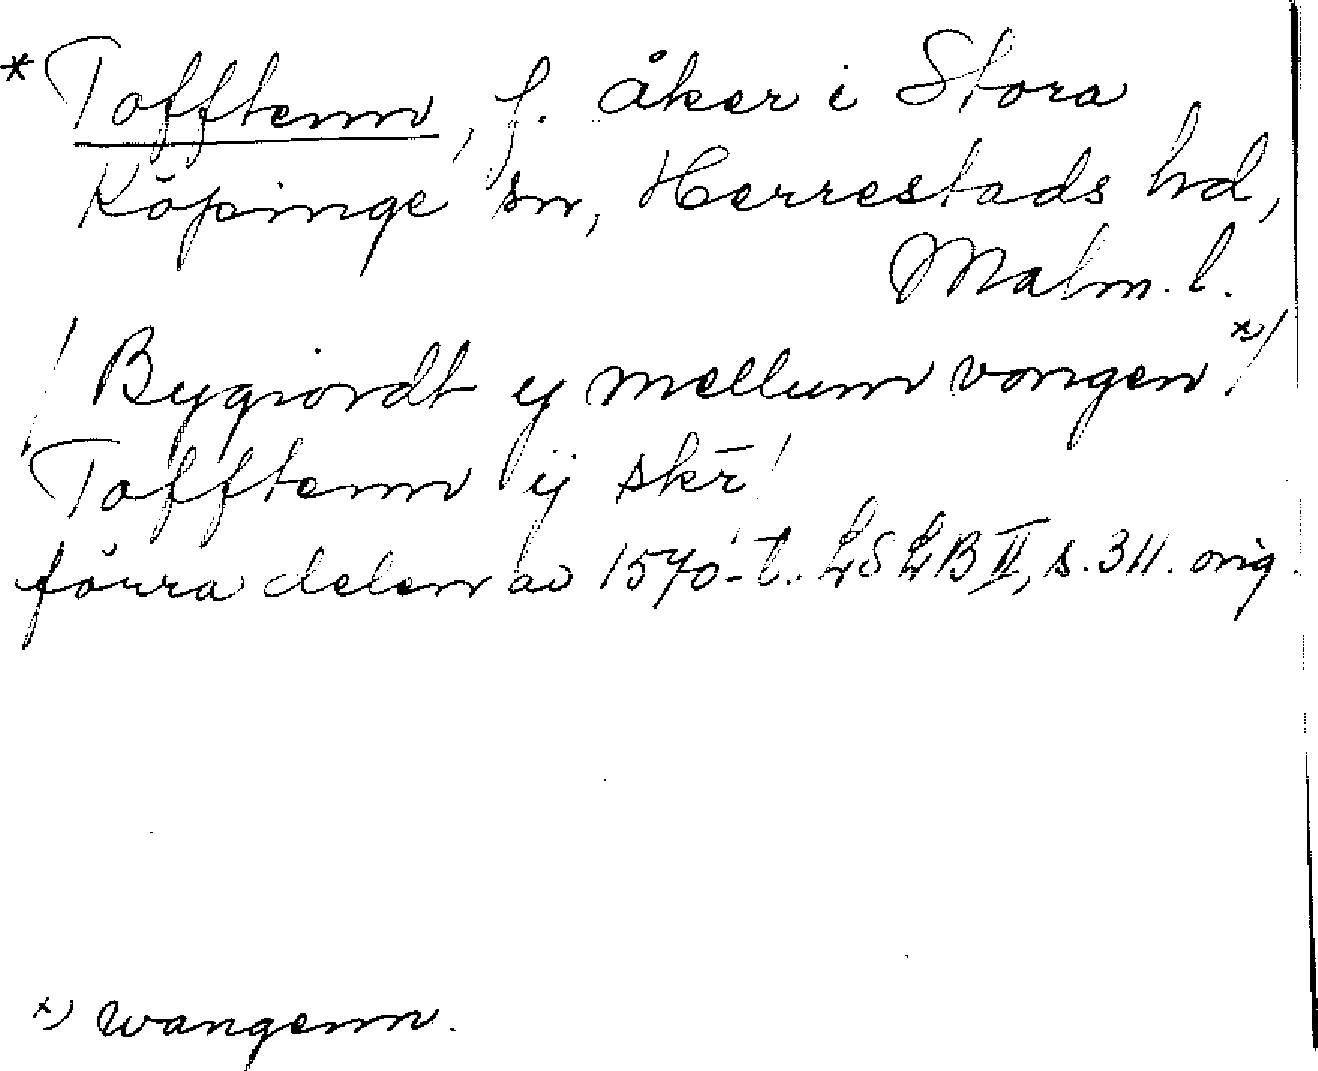 * Tofftenn, f. åker i Stora
Köpinge sn, Herrestads hd,
Malm. l.
/ Bygiordt ij mellum vongen x) /
Tofftenn ij skr̄ /
förra delen av 1570-t. LSLB II, s. 311. orig.
x) wangenn.